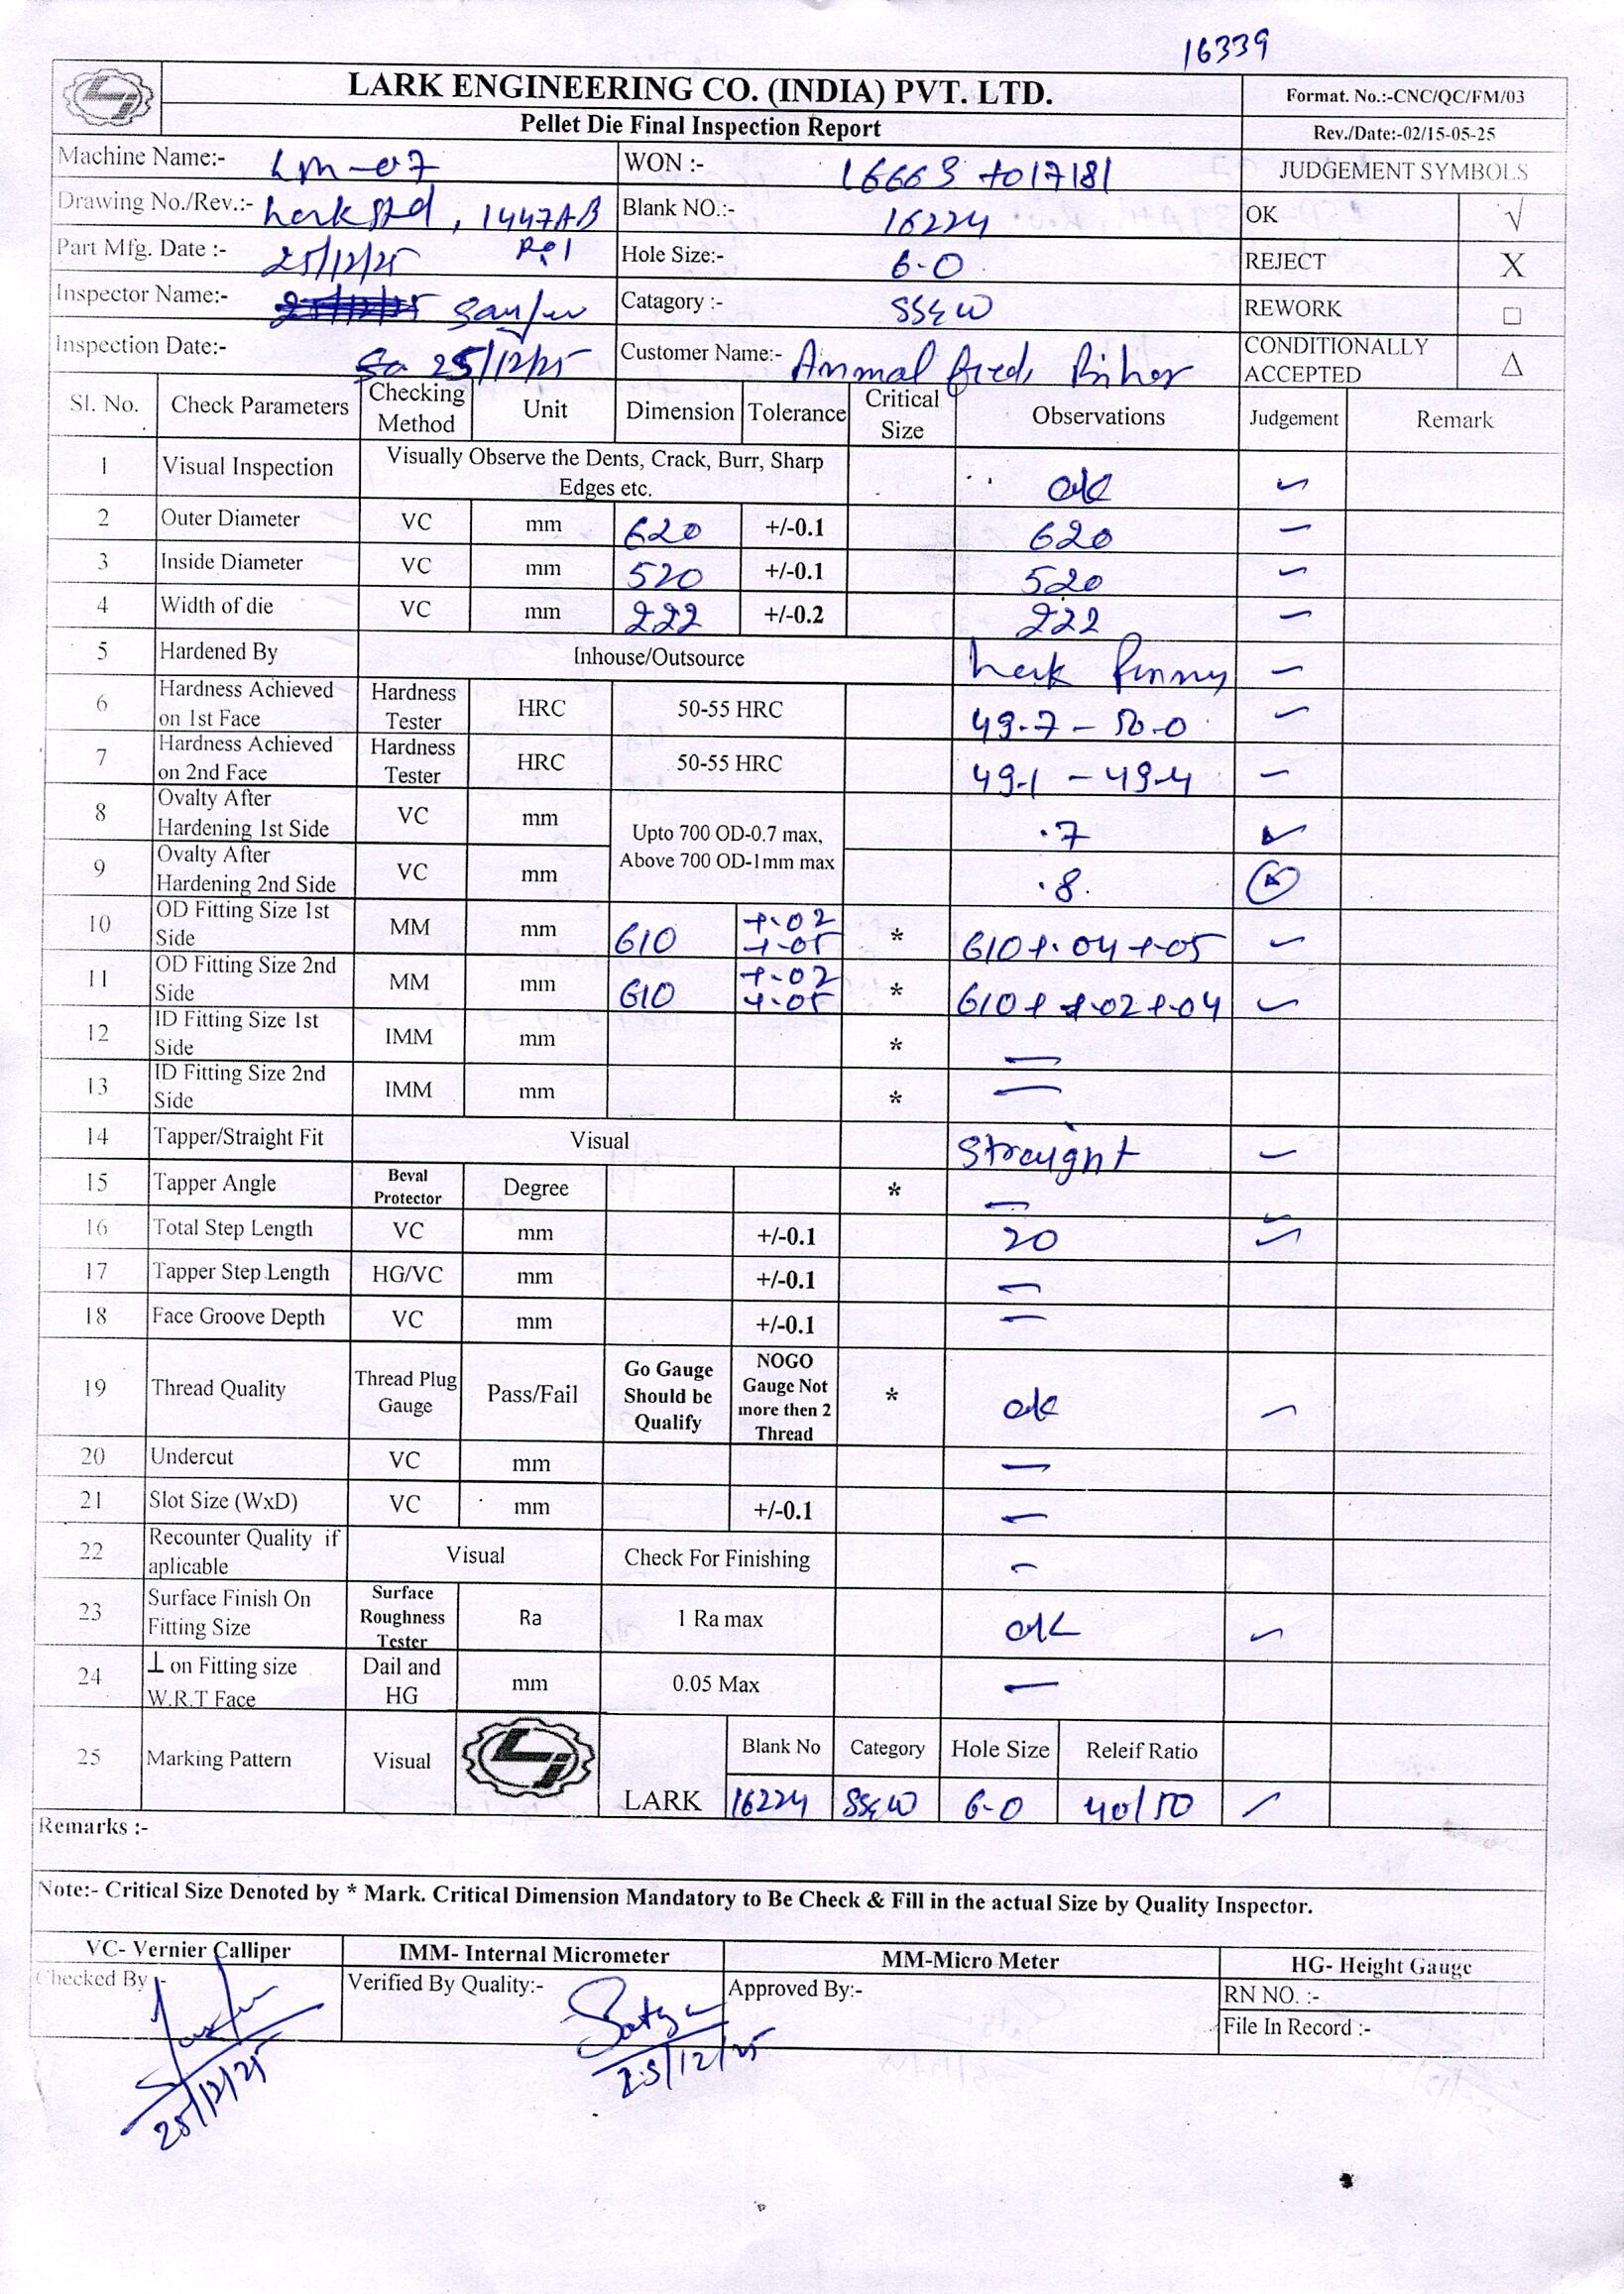 16339
LARK ENGINEERING CO. (INDIA) PVT. LTD.
Format. No.:-CNC/QC/FM/03
Pellet Die Final Inspection Report
Rev./Date:-02/15-05-25
Machine Name:- LM-07 WON :- 16663 to 17181 JUDGEMENT SYMBOLS
Drawing No./Rev.:- Lark std, 1447AB Blank NO.:- 16224 OK √
Part Mfg. Date :- 25/12/25 Hole Size:- 6.0 REJECT X
Inspector Name:- Catagory :- SS&W REWORK □
Inspection Date:- 25/12/25 Customer Name:- Animal feed, Bihar CONDITIONALLY ACCEPTED △
Sl. No. Check Parameters Checking Method Unit Dimension Tolerance Critical Size Observations Judgement Remark
1 Visual Inspection Visually Observe the Dents, Crack, Burr, Sharp Edges etc. ok
2 Outer Diameter VC mm 620 +/-0.1 620
3 Inside Diameter VC mm 520 +/-0.1 520
4 Width of die VC mm 222 +/-0.2 222
5 Hardened By Inhouse/Outsource Lark
6 Hardness Achieved on 1st Face Hardness Tester HRC 50-55 HRC 49.7 - 50.0
7 Hardness Achieved on 2nd Face Hardness Tester HRC 50-55 HRC 49.1 - 49.4
8 Ovalty After Hardening 1st Side VC mm Upto 700 OD-0.7 max, Above 700 OD-1mm max .7
9 Ovalty After Hardening 2nd Side VC mm .8
10 OD Fitting Size 1st Side MM mm 610 +.02 +.05 * 610+.04+.05
11 OD Fitting Size 2nd Side MM mm 610 +.02 +.05 * 610+ +.02+.04
12 ID Fitting Size 1st Side IMM mm * —
13 ID Fitting Size 2nd Side IMM mm * —
14 Tapper/Straight Fit Visual Straight
15 Tapper Angle Beval Protector Degree * —
16 Total Step Length VC mm +/-0.1 20
17 Tapper Step Length HG/VC mm +/-0.1 —
18 Face Groove Depth VC mm +/-0.1 —
19 Thread Quality Thread Plug Gauge Pass/Fail Go Gauge Should be Qualify NOGO Gauge Not more then 2 Thread * ok
20 Undercut VC mm —
21 Slot Size (WxD) VC mm +/-0.1 —
22 Recounter Quality if aplicable Visual Check For Finishing —
23 Surface Finish On Fitting Size Surface Roughness Tester Ra 1 Ra max ok
24 ⊥ on Fitting size W.R.T Face Dail and HG mm 0.05 Max —
25 Marking Pattern Visual LARK Blank No Category Hole Size Releif Ratio
16224 SS&W 6.0 40/50
Remarks :-
Note:- Critical Size Denoted by * Mark. Critical Dimension Mandatory to Be Check & Fill in the actual Size by Quality Inspector.
VC- Vernier Calliper IMM- Internal Micrometer MM-Micro Meter HG- Height Gauge
Checked By :- Verified By Quality:- Approved By:- RN NO. :-
File In Record :-
25/12/25 25/12/25